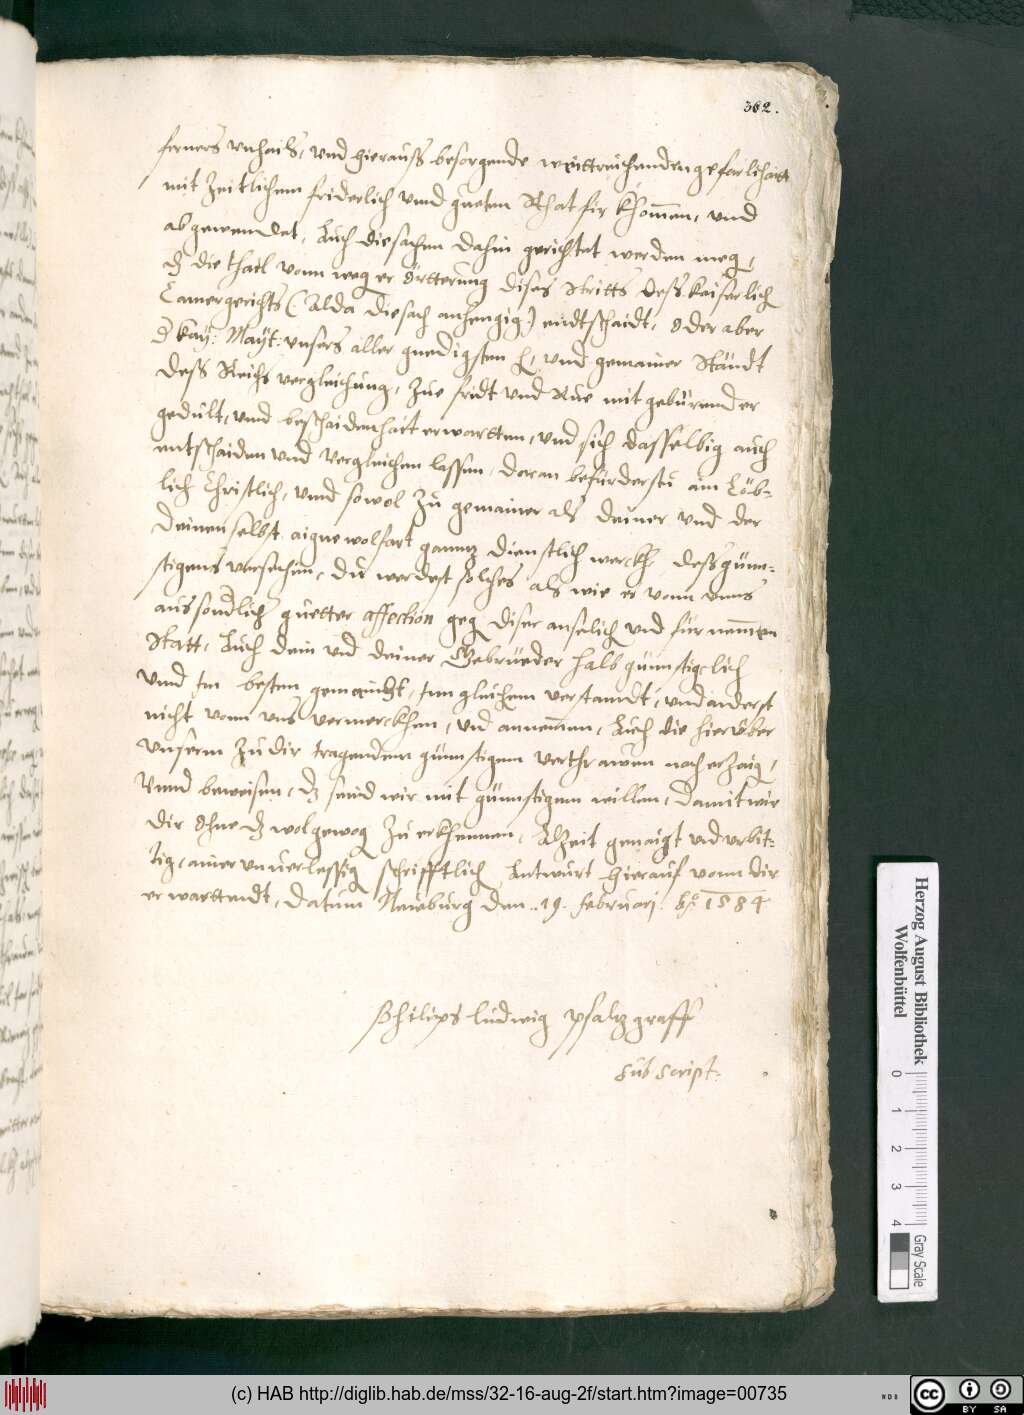 362.
ferners vnhails, vnd hierauss besorgende weittreichenden gefarlihait
mit zeitlichem friderlich vnnd gueten Rhat fir khomen, vnd
abgewendet, Auch die sachen dahin gerichtet werden meg,
dz die thail vonn weg er örtterung dises stritts dess kaiserlich
Camergerichts (: Alda die sach anhengig :) endtschaidt, oder aber
d kay: Mayt: vnsers aller gnedigsten h, vnd gemainer Ständt
dess Reichs vergleichung, zue fridt vnd Rue mit gebürender
gedult, vnnd beschaidenhait erwartten, vnd sich dasselbig auch
entschaiden vnd vergleichen lassen, daran befürderstu ain Löb-
lich Christlich, vnnd sowol zu gemainer als deiner vnd der
deinen selbst aigne wolfart gannz dienstlich werckh, dess günn-
stigens versehens, du werdest solches als wie er vonn vnns
aus sondlich guetter affection geg diser ansehlich vnd fürnemmen
Statt, Auch dein vnd deiner Gebrüeder halb günnstigelich
vnnd im besten gemaindt, inn gleichem verstandt, vnd anderst
nicht vonn vns vermerckhen, vnd annemen, Auch die hierüber
vnserm zu dir tragendem günnstigem verthrawen nach erzaig,
vnnd beweisen, dz seind wir mit günnstigem willen, damit wir
dir ohne dz wolgewog zu erkhennen, Alzeit genaigt vnd vrbit-
tig, ainer vnuerlessig schrifftlich Antwurt hierauf vonn dir
erwarttendt, Datum Neuburg den .. 19. februarj. Ao 1584.
Philips Ludwig Pfaltzgraff
Subscript:
Herzog August Bibliothek
Wolfenbüttel
0 1 2 3 4
Gray Scale
(c) HAB http://diglib.hab.de/mss/32-16-aug-2f/start.htm?image=00735
WDB
cc BY SA